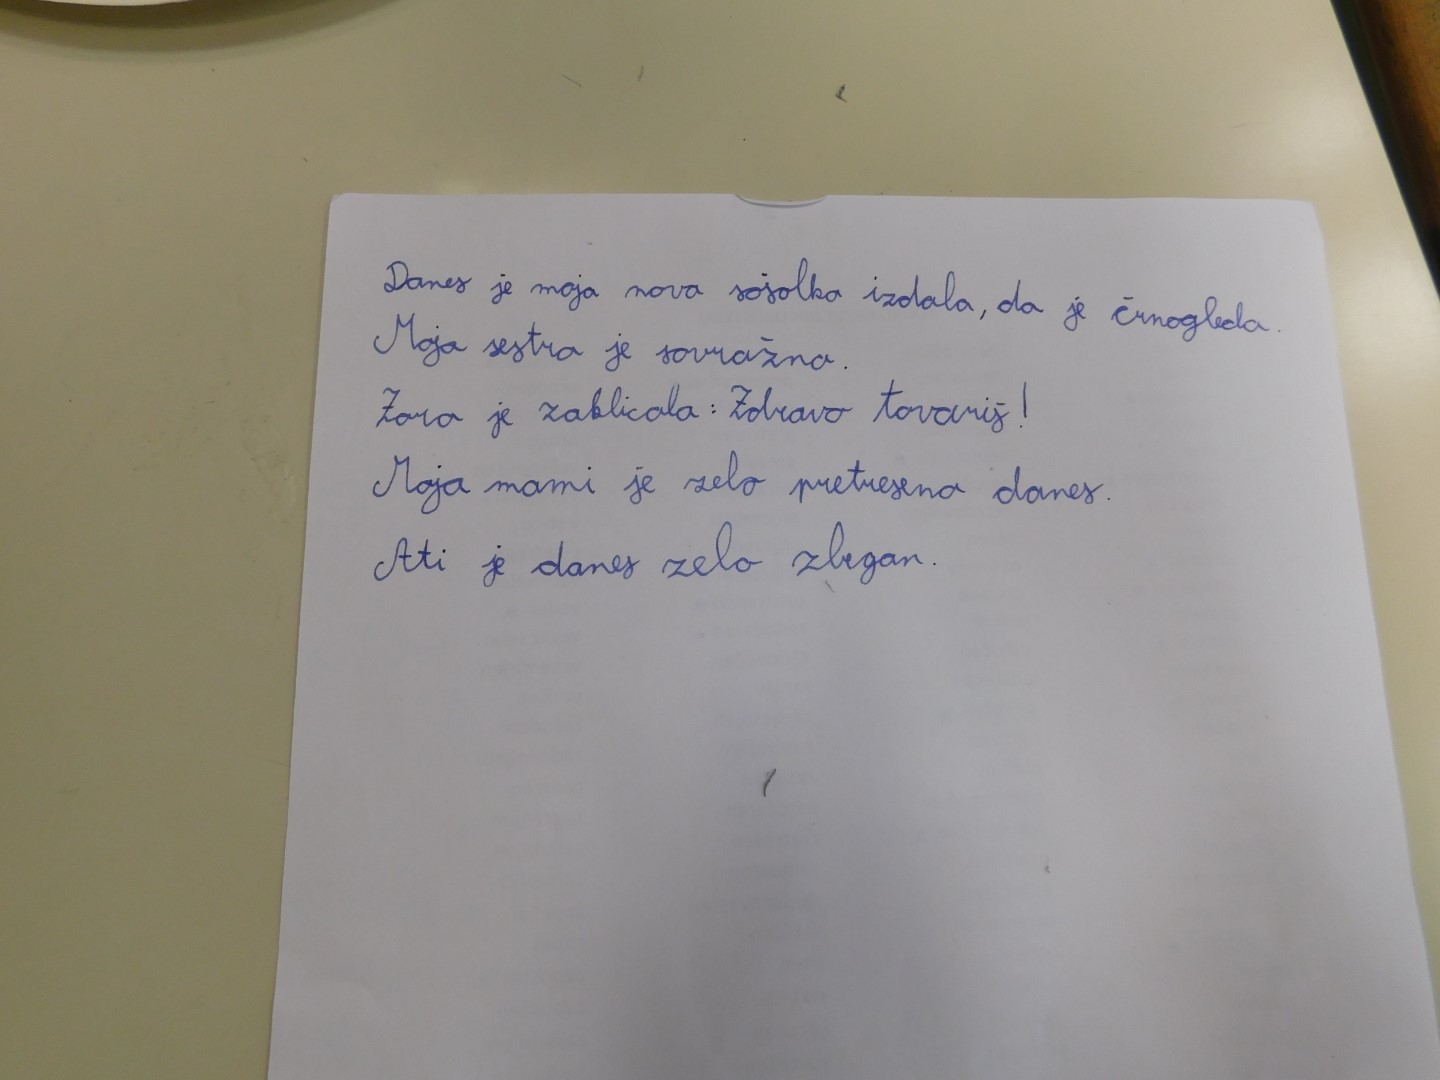 Danes je moja nova sošolka izdala, da je črnogleda.
Moja sestra je sovražna.
Zara je zaklicala: Zdravo tovariš!
Moja mami je zelo pretresena danes.
Ati je danes zelo zbegan.